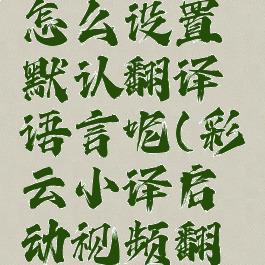 怎么设置
默认翻译
语言呢(彩
云小译启
动视频翻